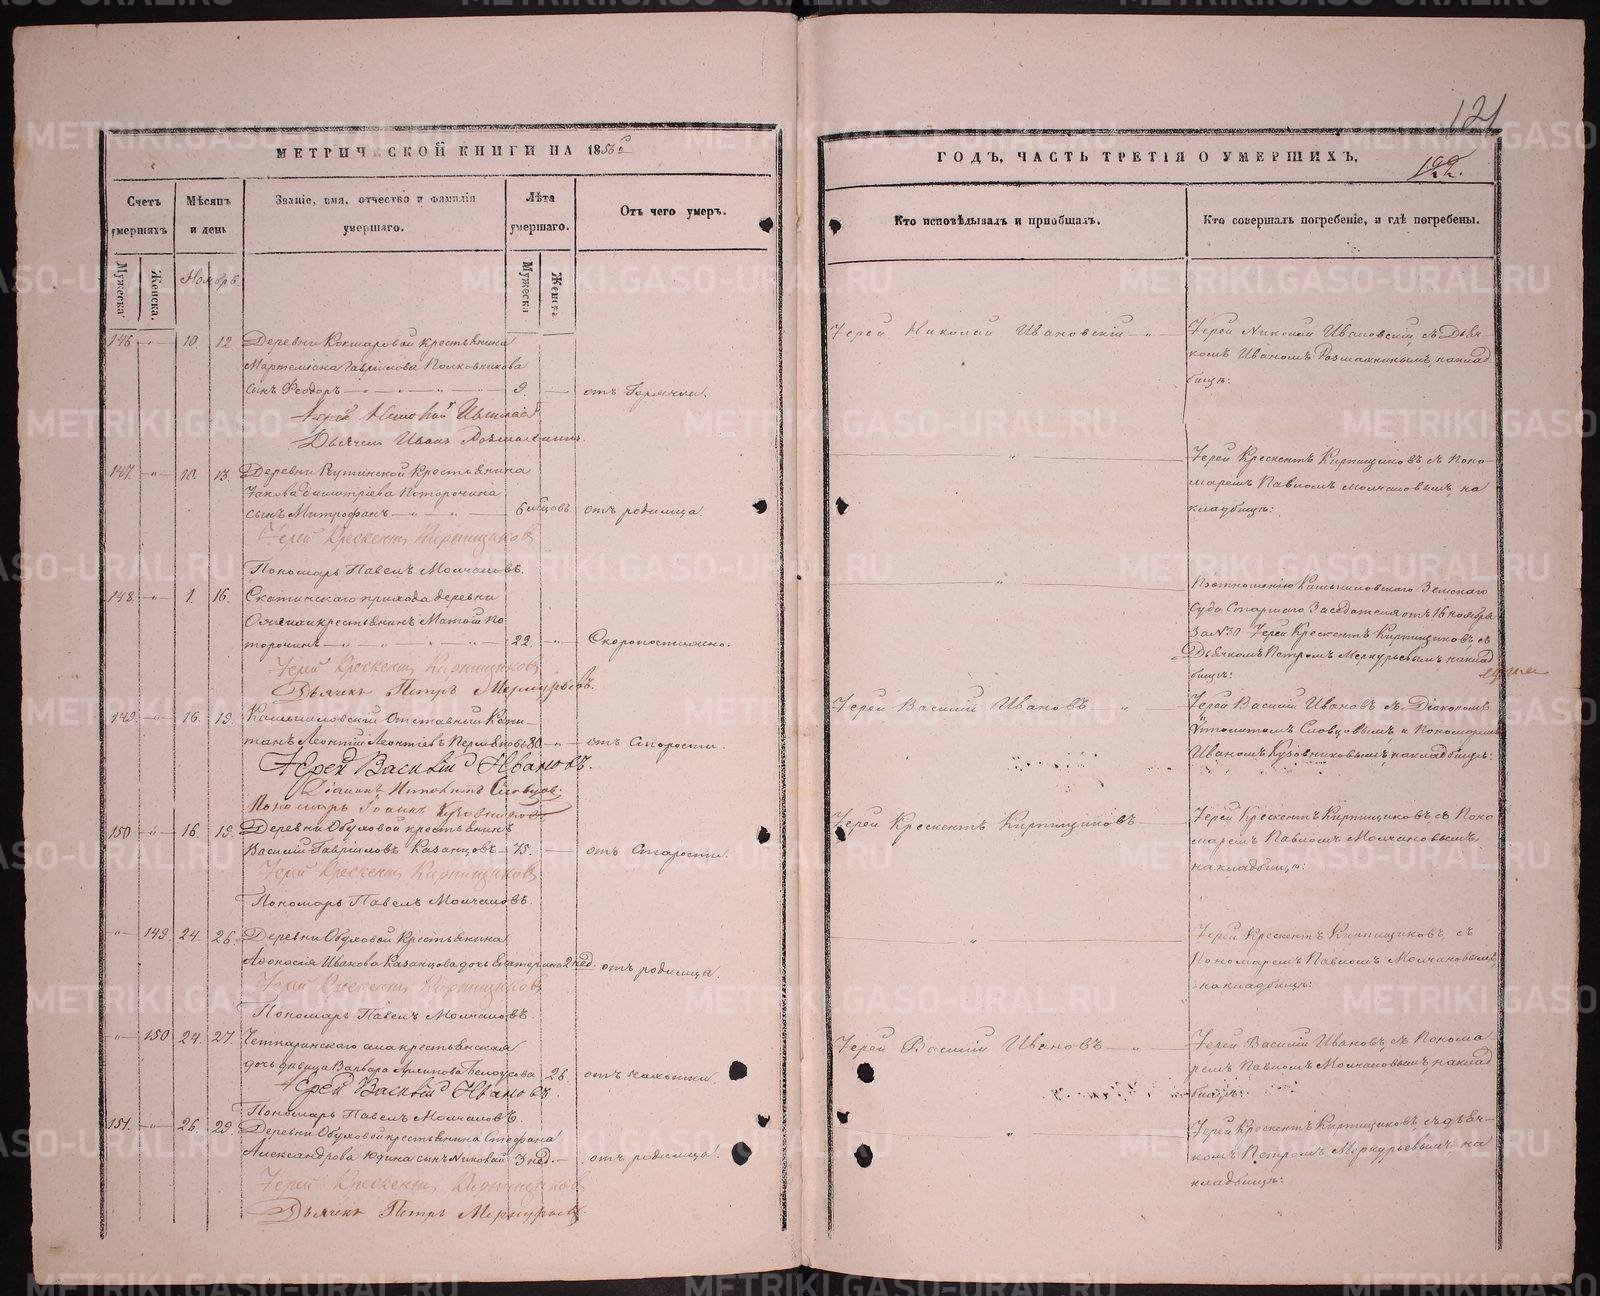 121
МЕТРИЧЕСКОЙ КНИГИ НА 1856
ГОДЪ, ЧАСТЬ ТРЕТІЯ О УМЕРШИХЪ,
122.
Счетъ умершихъ
Мѣсяцъ и день
Званіе, имя, отчество и фамилія умершаго.
Лѣта умершаго.
Отъ чего умеръ.
Кто исповѣдывалъ и пріобщалъ.
Кто совершалъ погребеніе, и гдѣ погребены.
Мужеска
Женска.
Ноябрь
Мужеска
Женска
146 10. 12. Деревни Кокшаровой крестьянина
Мартеміана Гаврілова Полковникова
сынъ Ѳеодоръ 9. отъ Горячки.
Іерей Николай Ивановскій
Іерей Николай Ивановскій съ Дья-
комъ Иваномъ накладбищѣ:
Дьячекъ Иванъ
147. 10. 13. Деревни Крестьянина
Іакова Димитріева Поторочина
сынъ Митрофанъ 6 мѣсцовъ отъ родимца.
Іерей Крескентъ Кирпищиковъ
Пономарь Павелъ Молчановъ.
Іерей Крескентъ Кирпищиковъ, съ Поно-
маремъ Павломъ Молчановымъ, на
кладбищѣ:
148. 1. 16. Скатинскаго прихода деревни
крестьянинъ По
торочинъ 22. Скоропостижно.
Іерей Крескентъ Кирпищиковъ
Дьячекъ Петръ Меркурьевъ.
По отношенію Камышловскаго Земскаго
Суда Старшаго Засѣдателя отъ 16 ноября
За №30 Іерей Крескентъ Кирпищиковъ, съ
Дьячкомъ Петромъ Меркурьевымъ, наклад
бищѣ:
149. 16. 19. Камышловскій Отставный Капи-
танъ Леонтій Леонтіевъ Пермяковъ 80. отъ Старости.
Іерей Василій Ивановъ.
Діаконъ Ипполитъ Словцовъ.
Пономарь Іоаннъ Кузовниковъ
Іерей Василій Ивановъ
Іерей Василій Ивановъ съ Діакономъ
Ипполитомъ Словцовымъ, и Пономаремъ
Иваномъ Кузовниковымъ, накладбищѣ:
150 16. 19. Деревни Обуховой крестьянинъ
Василій Гавріиловъ Казанцовъ 75. отъ Старости.
Іерей Крескентъ Кирпищиковъ
Пономарь Павелъ Молчановъ.
Іерей Крескентъ Кирпищиковъ
Іерей Крескентъ Кирпищиковъ съ Поно
маремъ Павломъ Молчановымъ,
накладбищѣ:
149. 24. 26. Деревни Обуховой Крестьянина
Аѳонасія Иванова Казанцова дочь Екатерина 2 нед. отъ родимца.
Іерей Крескентъ Кирпищиковъ
Пономарь Павелъ Молчановъ.
Іерей Крескентъ Кирпищиковъ, съ
Пономаремъ Павломъ Молчановымъ,
накладбищѣ:
150 24. 27. Четкаринскаго села крестьянская
дочь дѣвица Варвара Архипова Белоусова 26. отъ чахотки.
Іерей Василій Ивановъ.
Пономарь Павелъ Молчановъ.
Іерей Василій Ивановъ
Іерей Василій Ивановъ, съ Понома
ремъ Павломъ Молчановымъ, наклад
бищѣ:
151. 26. 29. Деревни Обуховой крестьянина Стефана
Александрова Юдина сынъ Николай 3 нед. отъ родимца.
Іерей Крескентъ Кирпищиковъ
Дьячекъ Петръ Меркурьевъ
Іерей Крескентъ Кирпищиковъ съ дьяч-
комъ Петромъ Меркурьевымъ, на
кладбищѣ:
METRIKI.GASO-URAL.RU